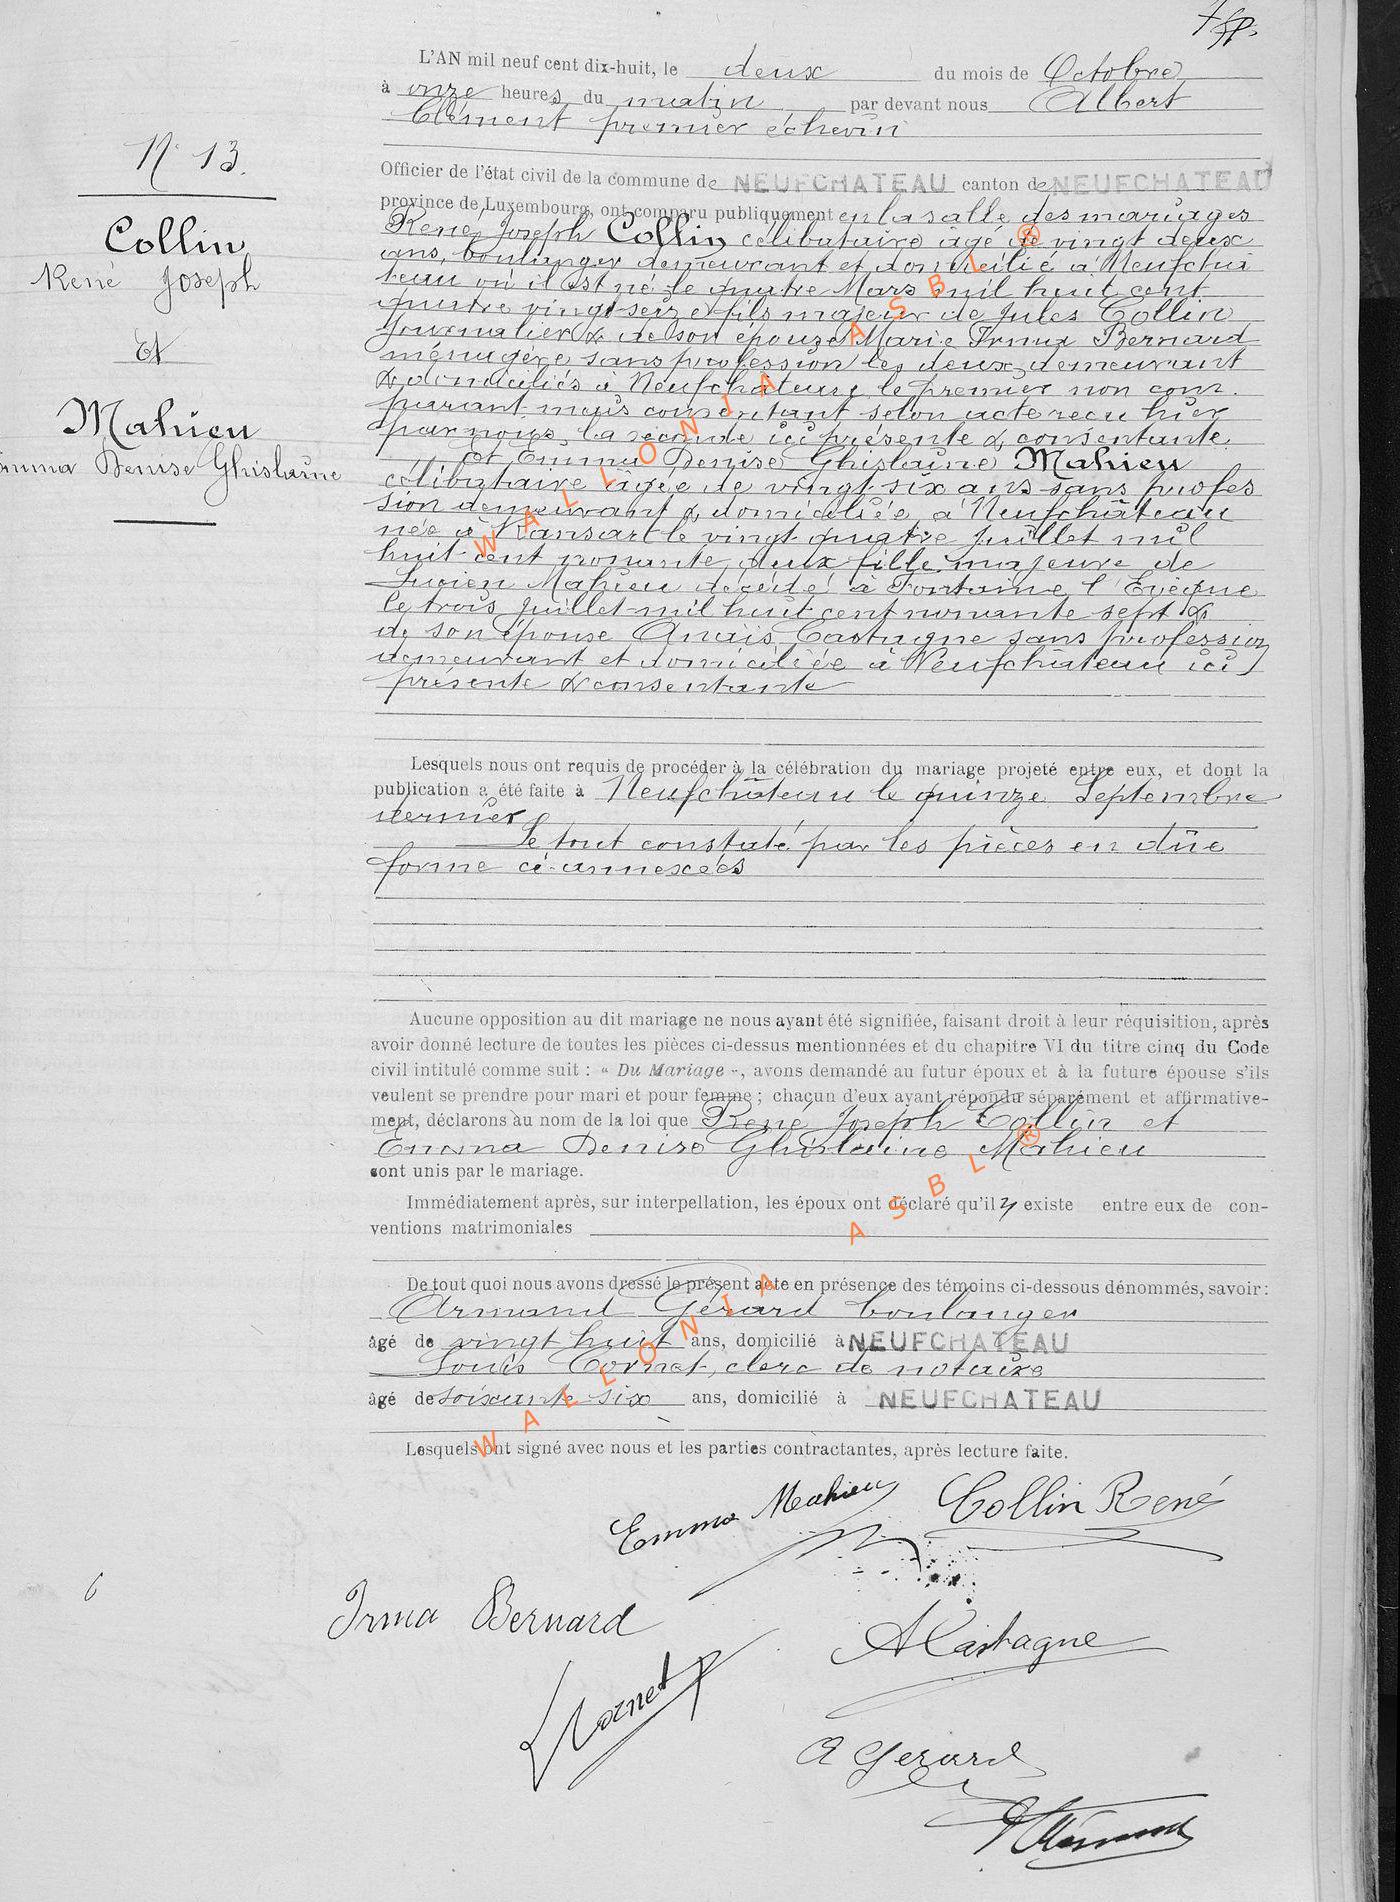 N° 13.
Collin
René Joseph
Et
Mahieu
Emma Denise Ghislaine
L'AN mil neuf cent dix-huit, le deux du mois de Octobre
à onze heures du matin par devant nous Albert
Clément premier échevin
Officier de l'état civil de la commune de NEUFCHATEAU canton de NEUFCHATEAU
province de Luxembourg, ont comparu publiquement en la salle des mariages
René Joseph Collin célibataire âgé de vingt deux
ans, boulanger demeurant et domicilié à Neufchâ
teau où il est né le quatre Mars mil huit cent
quatre vingt seize fils majeur de Jules Collin
journalier & de son épouze Marie Irma Bernard
ménagère sans profession les deux demeurant
& domiciliés à Neufchâteau le premier non com
parant mais consentant selon acte recu hier
par nous, la seconde ici présente & consentante.
Et Emma Denise Ghislaine Mahieu
célibataire âgée de vingt six ans sans profes
sion demeurant & domiciliée à Neufchâteau
née à Ransart le vingt quatre Juillet mil
huit cent nonante deux fille majeure de
Lucien Mahieu décédé à Fontaine l'Evêque
le trois Juillet mil huit cent nonante sept &
de son épouse Anaïs Castagne sans profession
demeurant et domiciliée à Neufchâteau ici
présente & consentante
Lesquels nous ont requis de procéder à la célébration du mariage projeté entre eux, et dont la
publication a été faite à Neufchâteau le quinze Septembre
dernier
Le tout constaté par les pièces en dûe
forme ci-annexées
Aucune opposition au dit mariage ne nous ayant été signifiée, faisant droit à leur réquisition, après
avoir donné lecture de toutes les pièces ci-dessus mentionnées et du chapitre VI du titre cinq du Code
civil intitulé comme suit : « Du Mariage », avons demandé au futur époux et à la future épouse s'ils
veulent se prendre pour mari et pour femme ; chacun d'eux ayant répondu séparément et affirmative-
ment, déclarons au nom de la loi que René Joseph Collin et
Emma Denise Ghislaine Mahieu
sont unis par le mariage.
Immédiatement après, sur interpellation, les époux ont déclaré qu'il y existe entre eux de con-
ventions matrimoniales
De tout quoi nous avons dressé le présent acte en présence des témoins ci-dessous dénommés, savoir :
Armand Gérard boulanger
âgé de vingt huit ans, domicilié à NEUFCHATEAU
Louis Cornet, clerc de notaire
âgé de soixante six ans, domicilié à NEUFCHATEAU
Lesquels ont signé avec nous et les parties contractantes, après lecture faite.
Emma Mahieu Collin René
Irma Bernard
A Castagne
L Cornet
A Gerard
A Clément
WALLONIA ASBL ®
WALLONIA ASBL ®